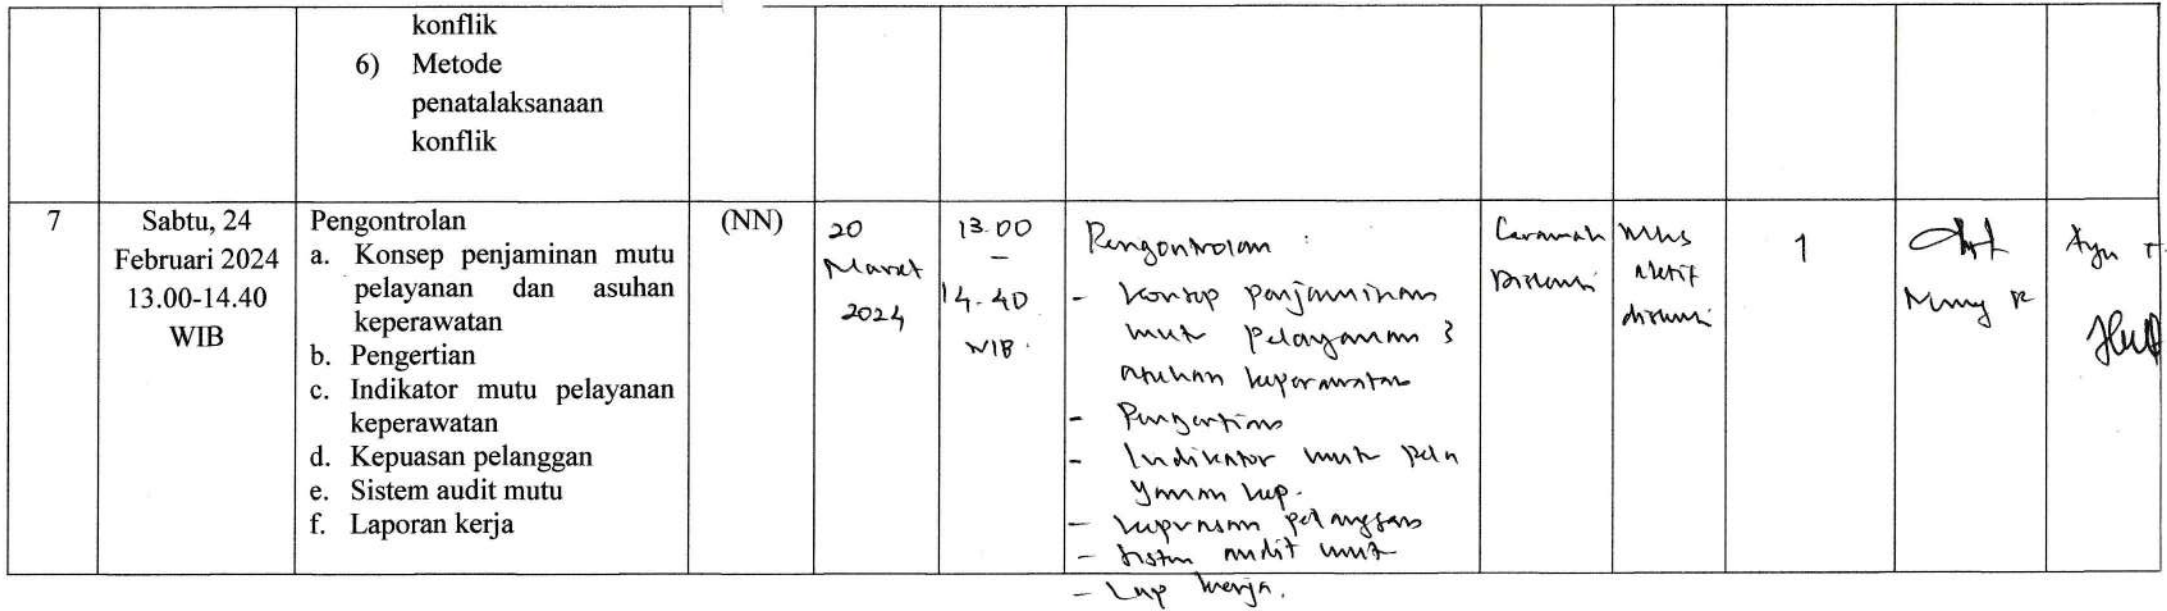 konflik
6) Metode
penatalaksanaan
konflik
7
Sabtu, 24
Februari 2024
13.00-14.40
WIB
Pengontrolan
a. Konsep penjaminan mutu
pelayanan dan asuhan
keperawatan
b. Pengertian
c. Indikator mutu pelayanan
keperawatan
d. Kepuasan pelanggan
e. Sistem audit mutu
f. Laporan kerja
(NN)
20
Maret
2024
13.00
-
14.40
WIB.
Pengontrolan :
- Konsep penjaminan
mutu pelayanan &
asuhan keperawatan
- Pengertian
- Indikator mutu pela
yanan kep.
- kepuasan pelanggan
- sistem audit mutu
- Lap kerja.
Ceramah
Diskusi
Mhs
aktif
diskusi
1
Ayu